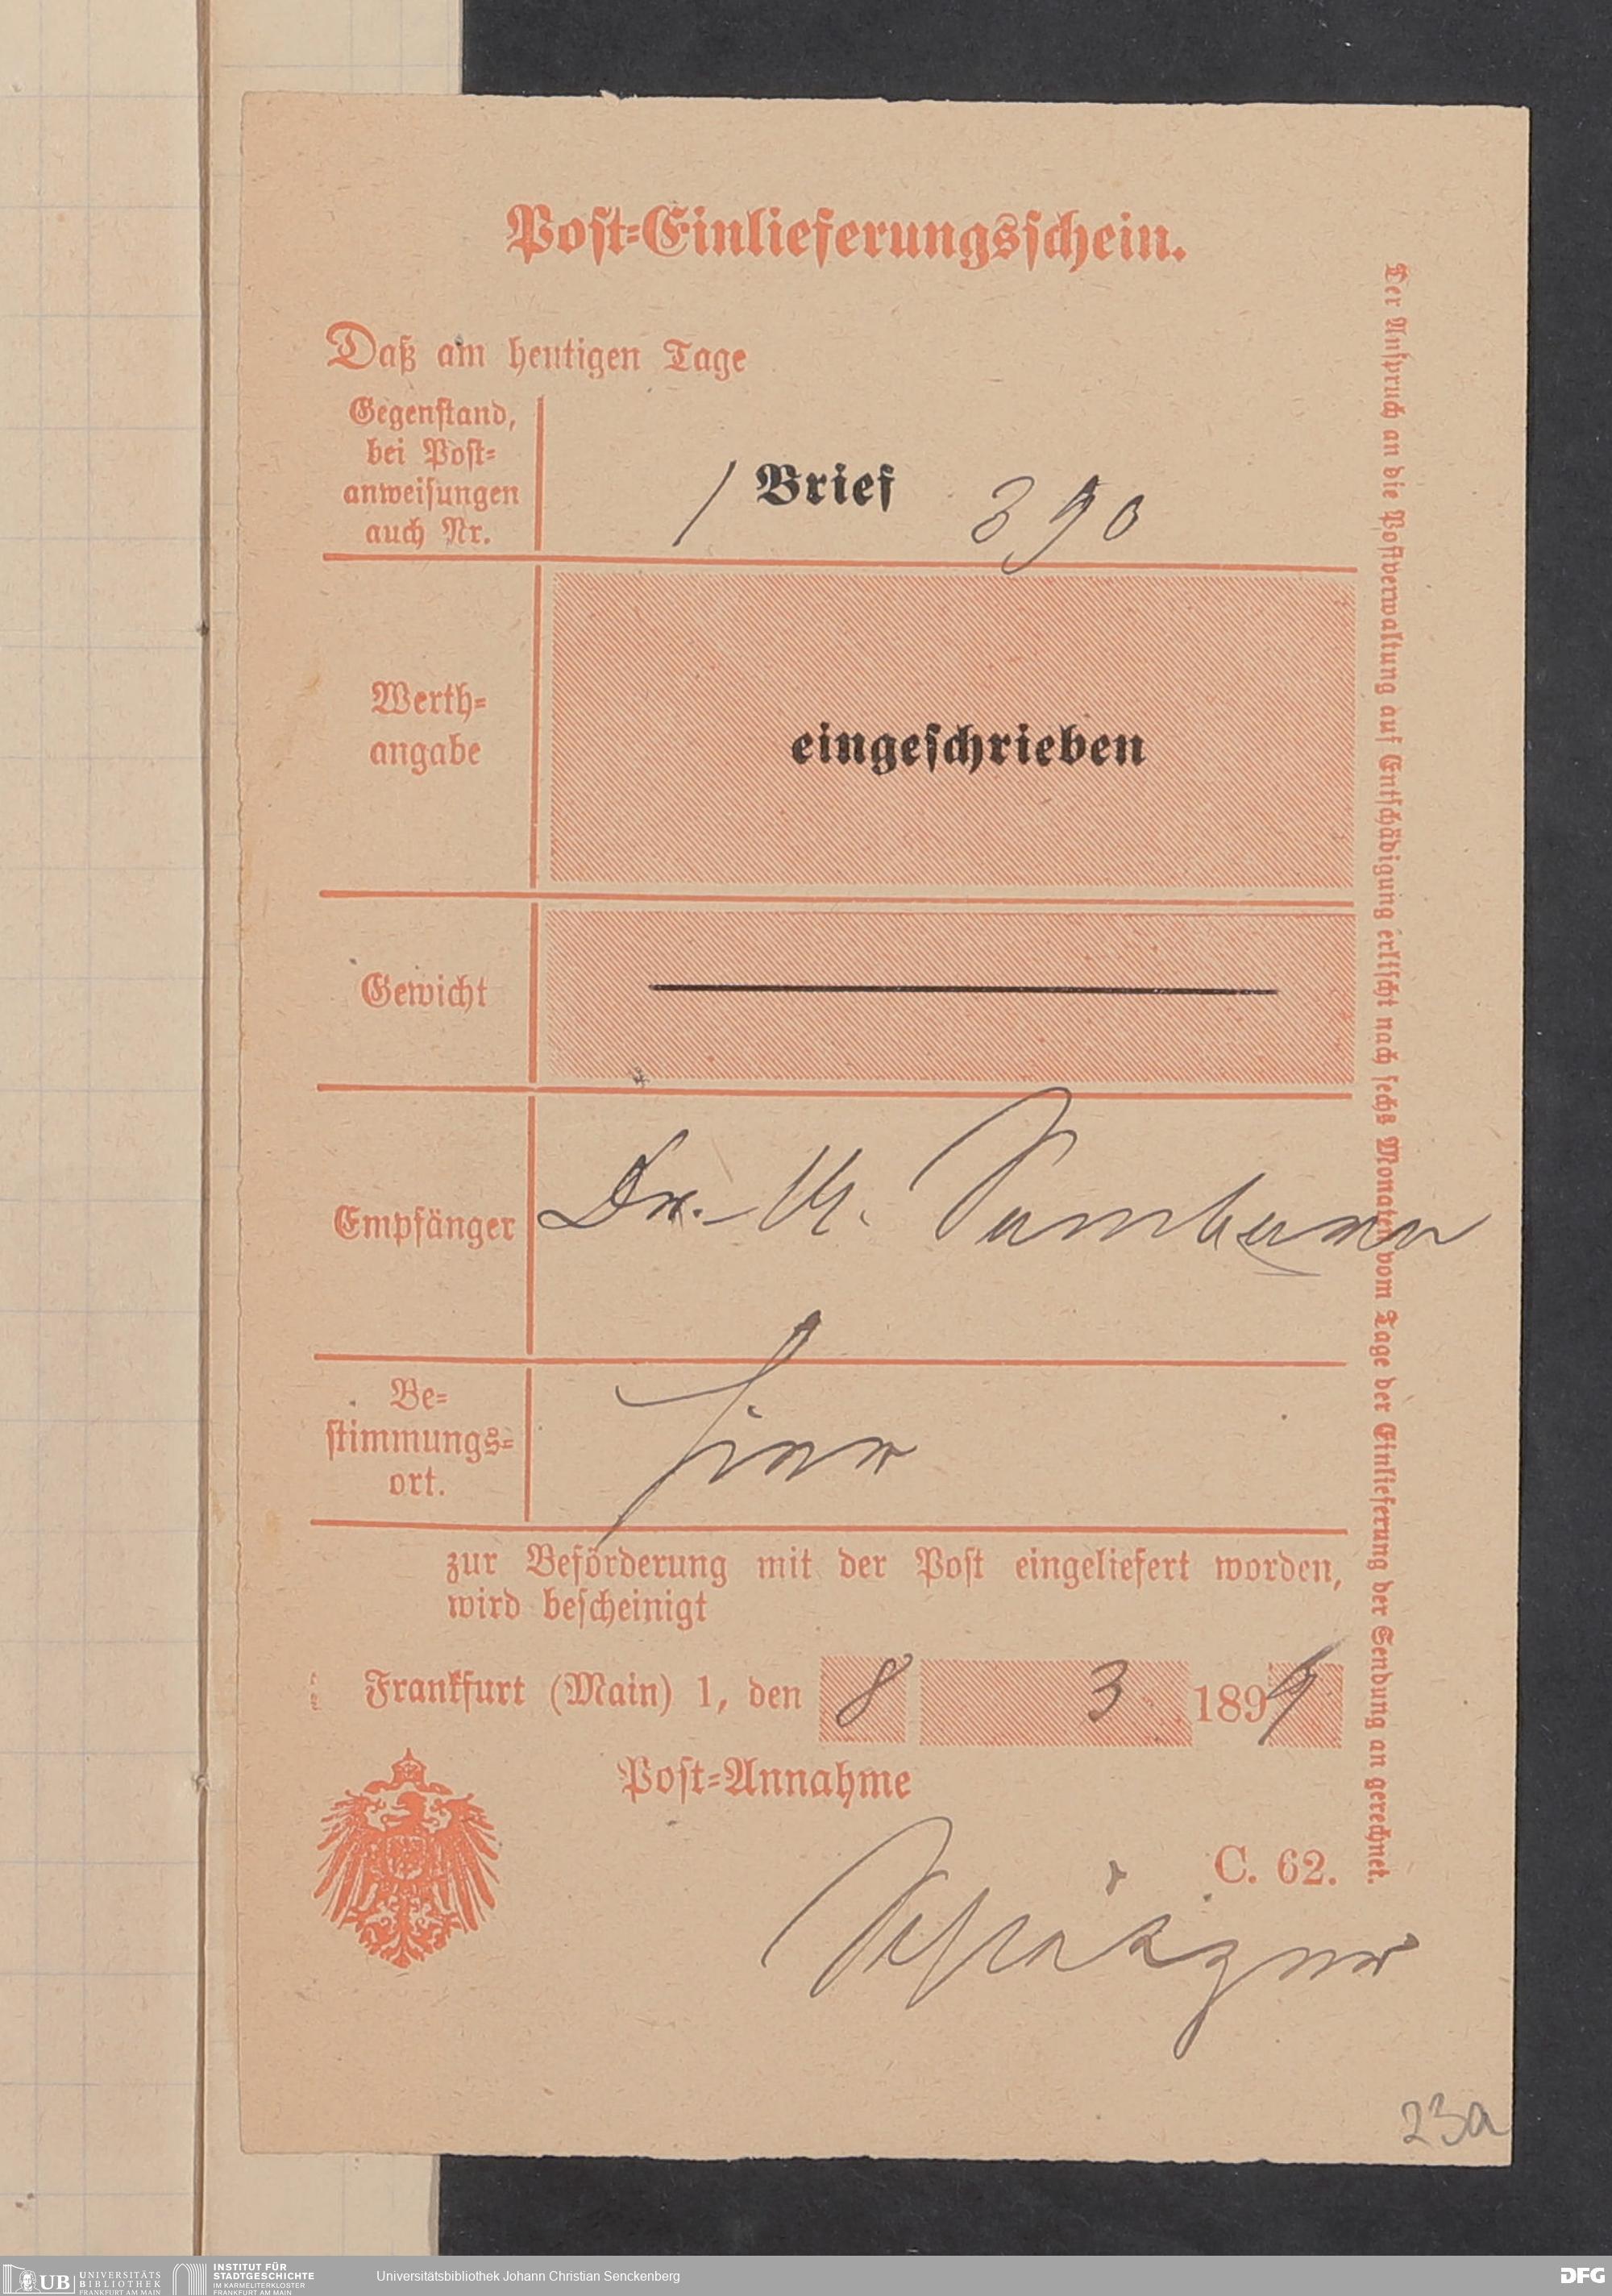 Post-Einlieferungsschein.
Daß am heutigen Tage
Gegenstand,
bei Post-
anweisungen
auch Nr.
1 Brief 390
Werth-
angabe
eingeschrieben
Gewicht
Empfänger
Dr. M.
Be-
stimmungs-
ort.
hier
zur Beförderung mit der Post eingeliefert worden,
wird bescheinigt
Frankfurt (Main) 1, den 8 3 1899
Post-Annahme
C. 62.
Der Anspruch an die Postverwaltung auf Entschädigung erlischt nach sechs Monaten vom Tage der Einlieferung der Sendung an gerechnet.
23a
UB UNIVERSITÄTS
BIBLIOTHEK
FRANKFURT AM MAIN
INSTITUT FÜR
STADTGESCHICHTE
IM KARMELITERKLOSTER
FRANKFURT AM MAIN
Universitätsbibliothek Johann Christian Senckenberg
DFG